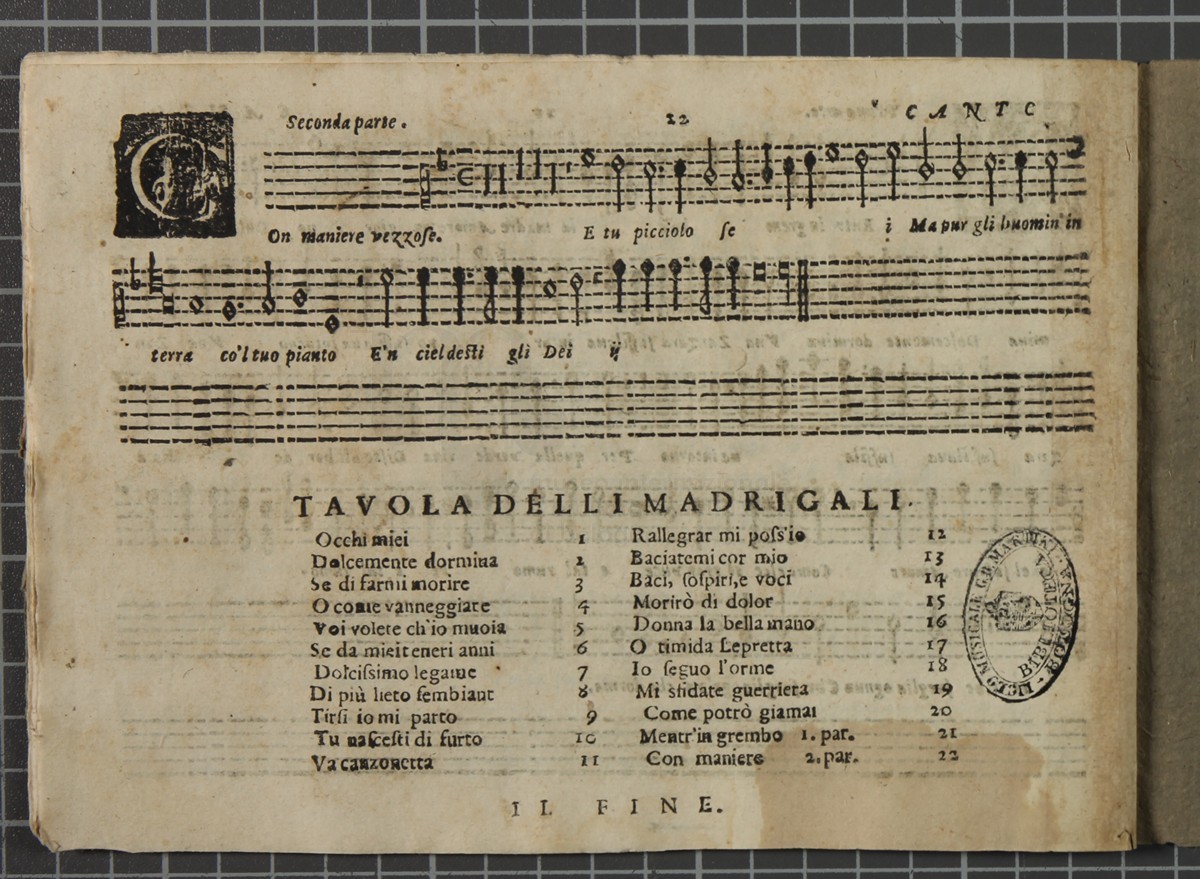 Seconda parte. 22 CANTO
C
On maniere vezzose. E tu picciolo se i Ma pur gli huomin in
terra co'l tuo pianto E'n ciel desti gli Dei ij
TAVOLA DELLI MADRIGALI.
Occhi miei 1
Dolcemente dormiua 2
Se di farmi morire 3
O come vanneggiate 4
Voi volete ch'io muoia 5
Se da miei teneri anni 6
Dolcissimo legame 7
Di più lieto sembiant 8
Tirsi io mi parto 9
Tu nascesti di furto 10
Va canzonetta 11
Rallegrar mi poss'io 12
Baciatemi cor mio 13
Baci, sospiri, e voci 14
Morirò di dolor 15
Donna la bella mano 16
O timida Lepretta 17
Io seguo l'orme 18
Mi sfidate guerriera 19
Come potrò giamai 20
Mentr'in grembo 1. par. 21
Con maniere 2. par. 22
LICEO MUSICALE G.B. MARTINI BOLOGNA
BIBLIOTECA
IL FINE.